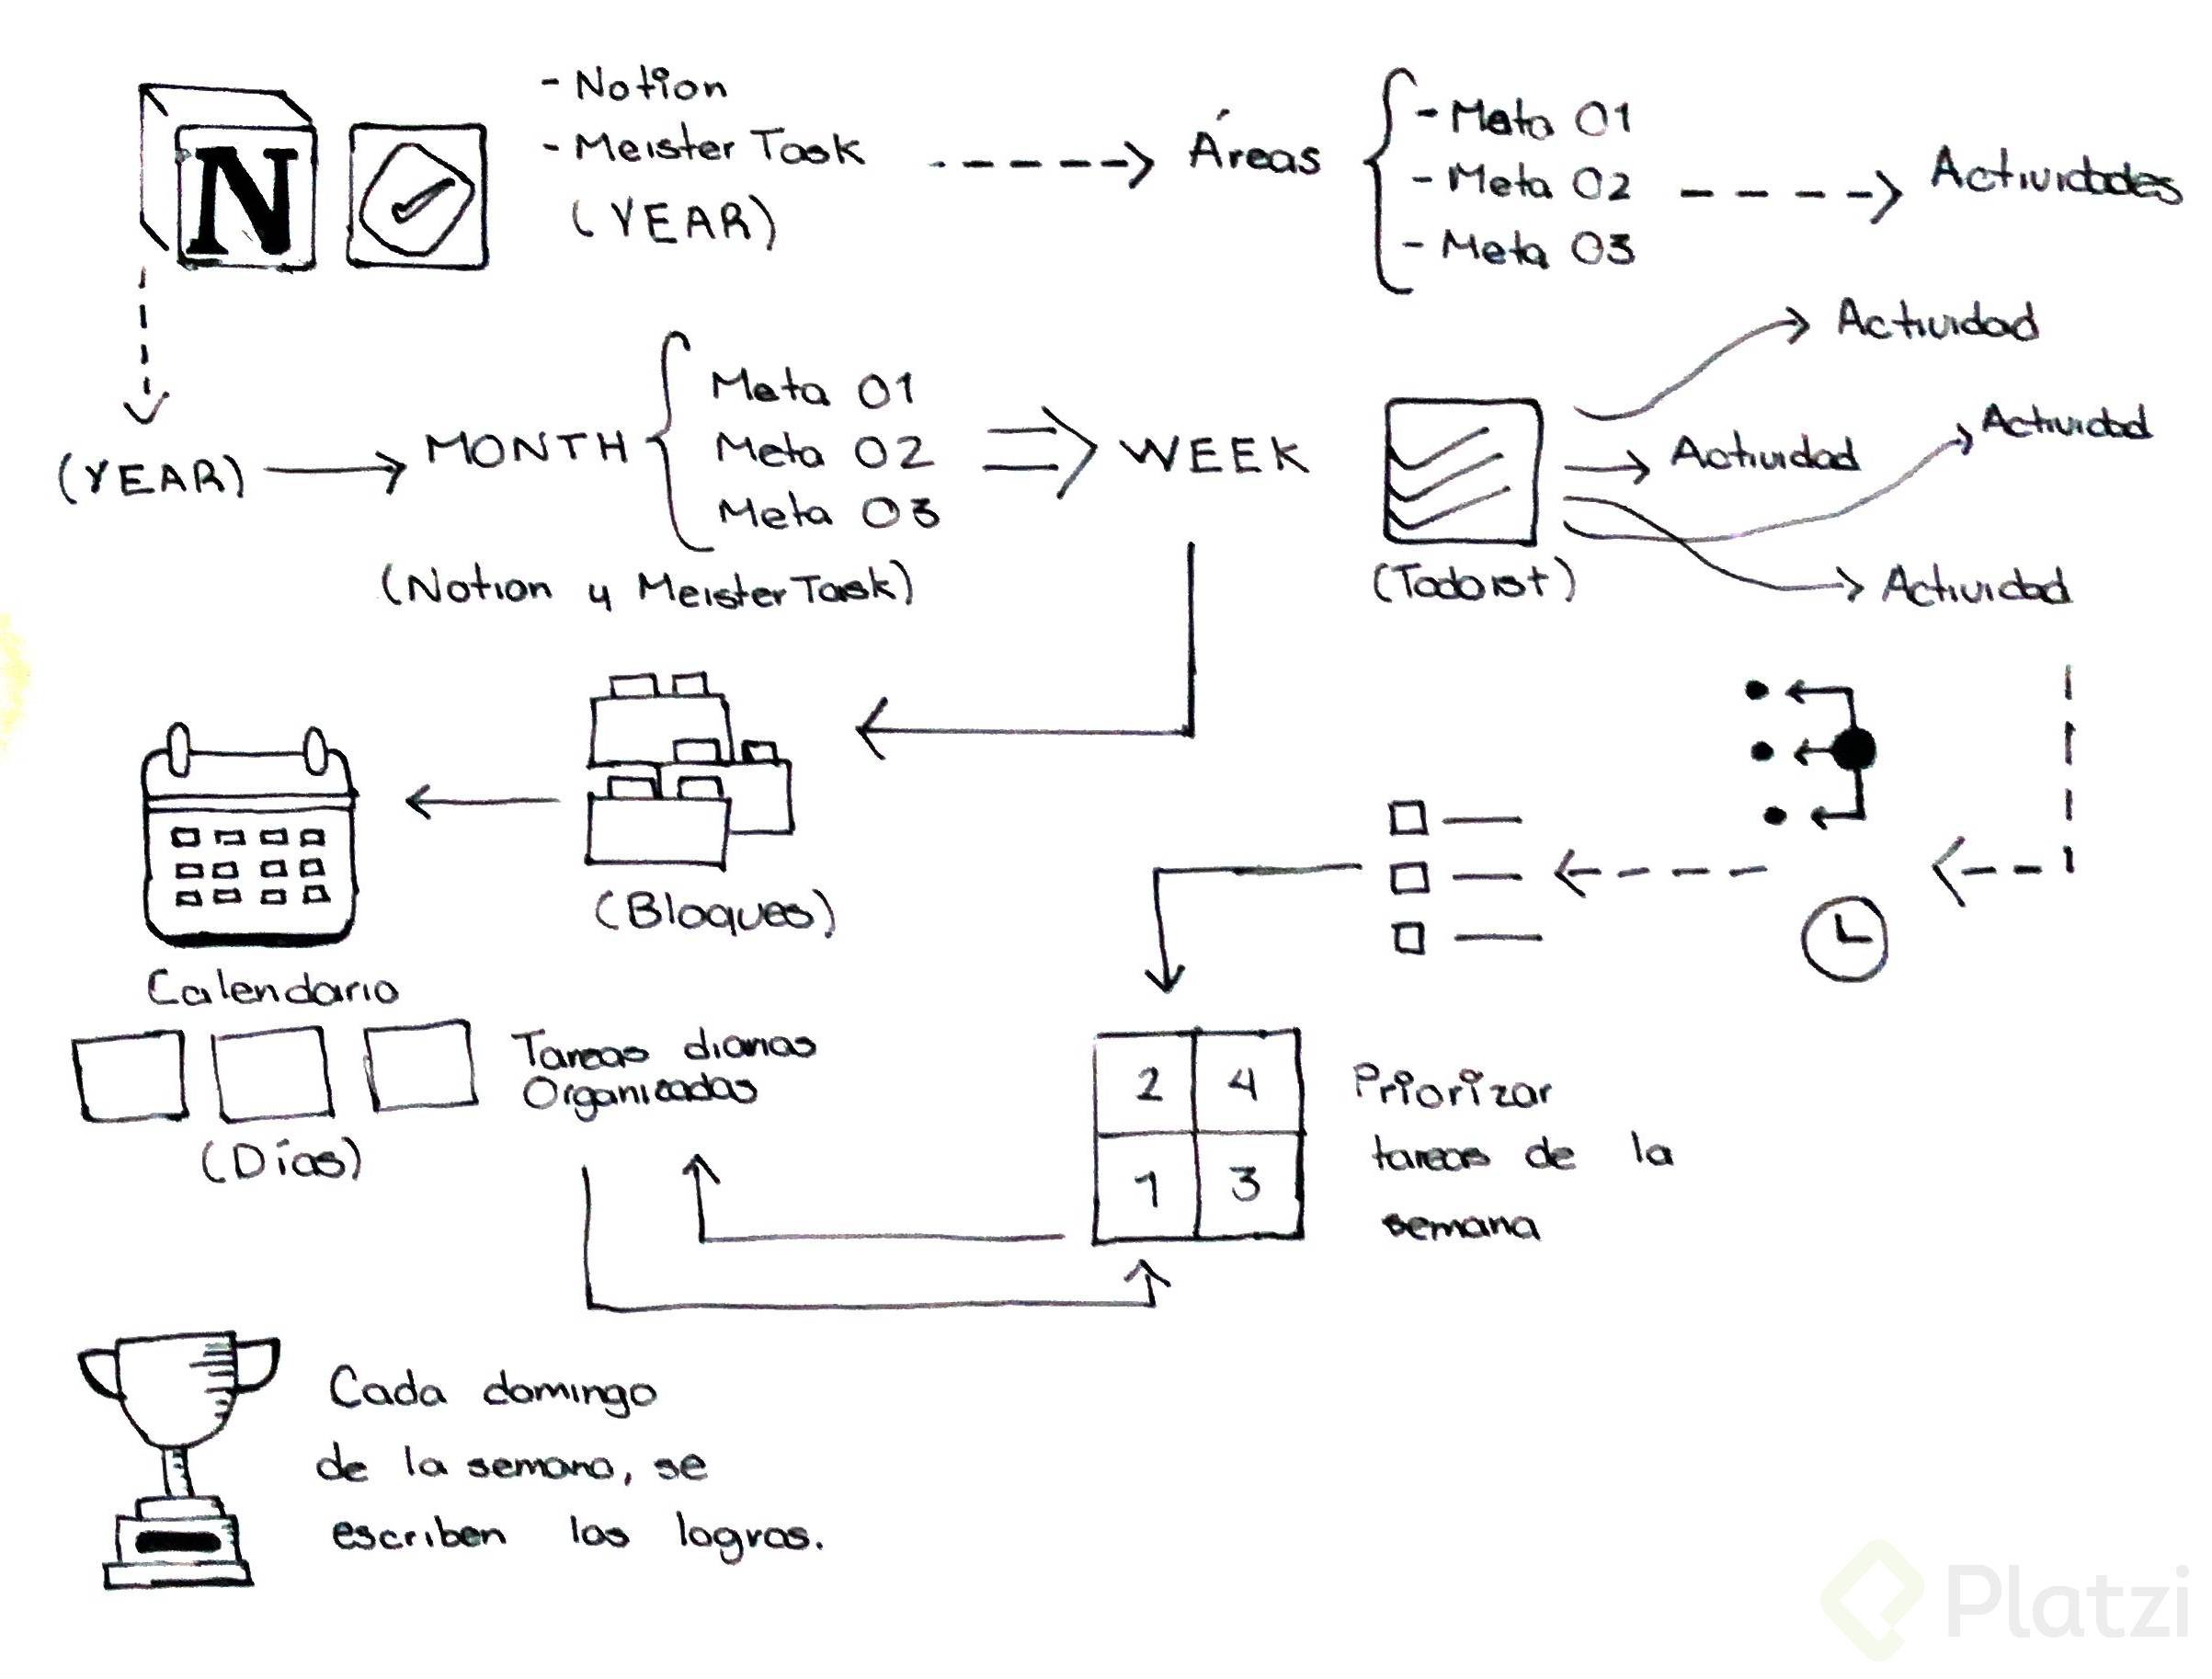 - Notion
- Meister Task
(YEAR)
N
Áreas
- Meta 01
- Meta 02
- Meta 03
Actividades
(YEAR)
MONTH
Meta 01
Meta 02
Meta 03
(Notion y Meister Task)
WEEK
(Todoist)
Actividad
Actividad
Actividad
Actividad
(Bloques)
Calendario
(Días)
Tareas diarias
Organizadas
2 4
1 3
Priorizar
tareas de la
semana
Cada domingo
de la semana, se
escriben los logros.
Platzi